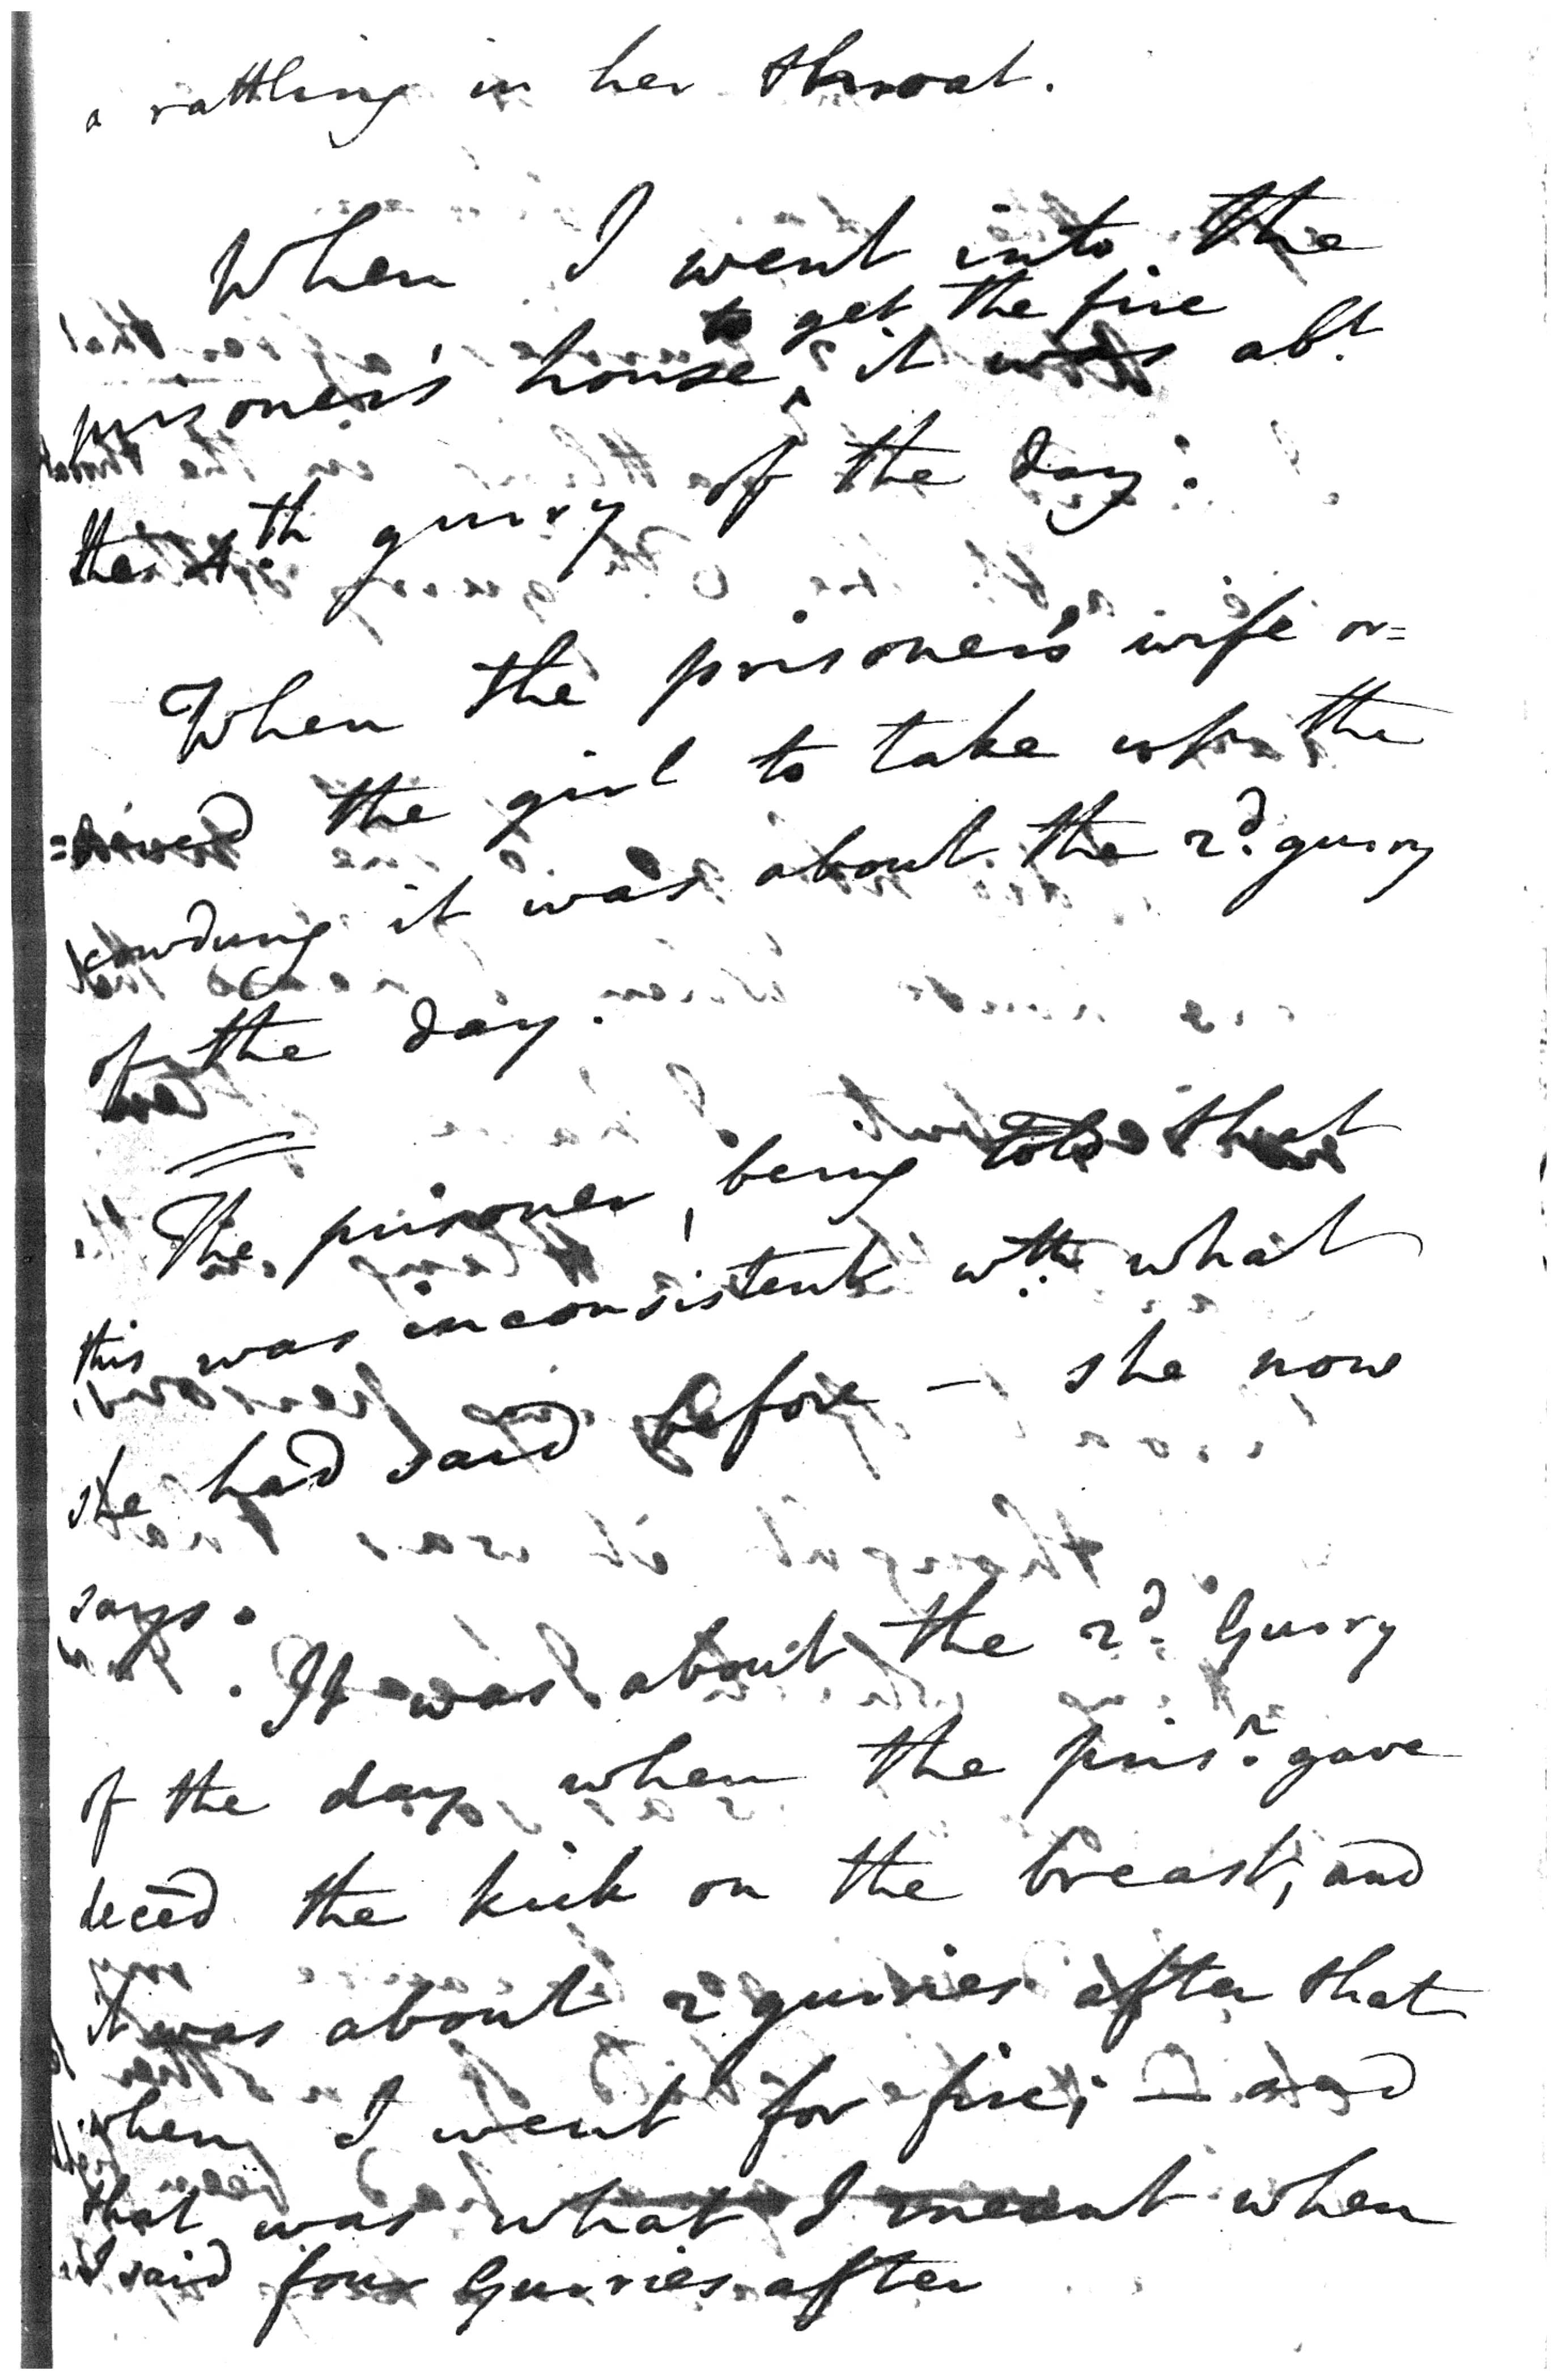 a rattling in her throat.
When I went into the
to get the fire
prisoner's house, it was abt.
the 4.th gurry of the day.
When the prisoner's wife or=
=dered the girl to take up the
cowdung it was about the 2d. gurry
of the day.
The prisoner, being told that
this was inconsistent wth. what
she had said before — she now
says.
It was about the 2d. Gurry
of the day when the prisr. gave
deced the kick on the breast, and
it was about 2 gurries after that
when I went for fire; — and
that was what I meant when
I said four Gurries after